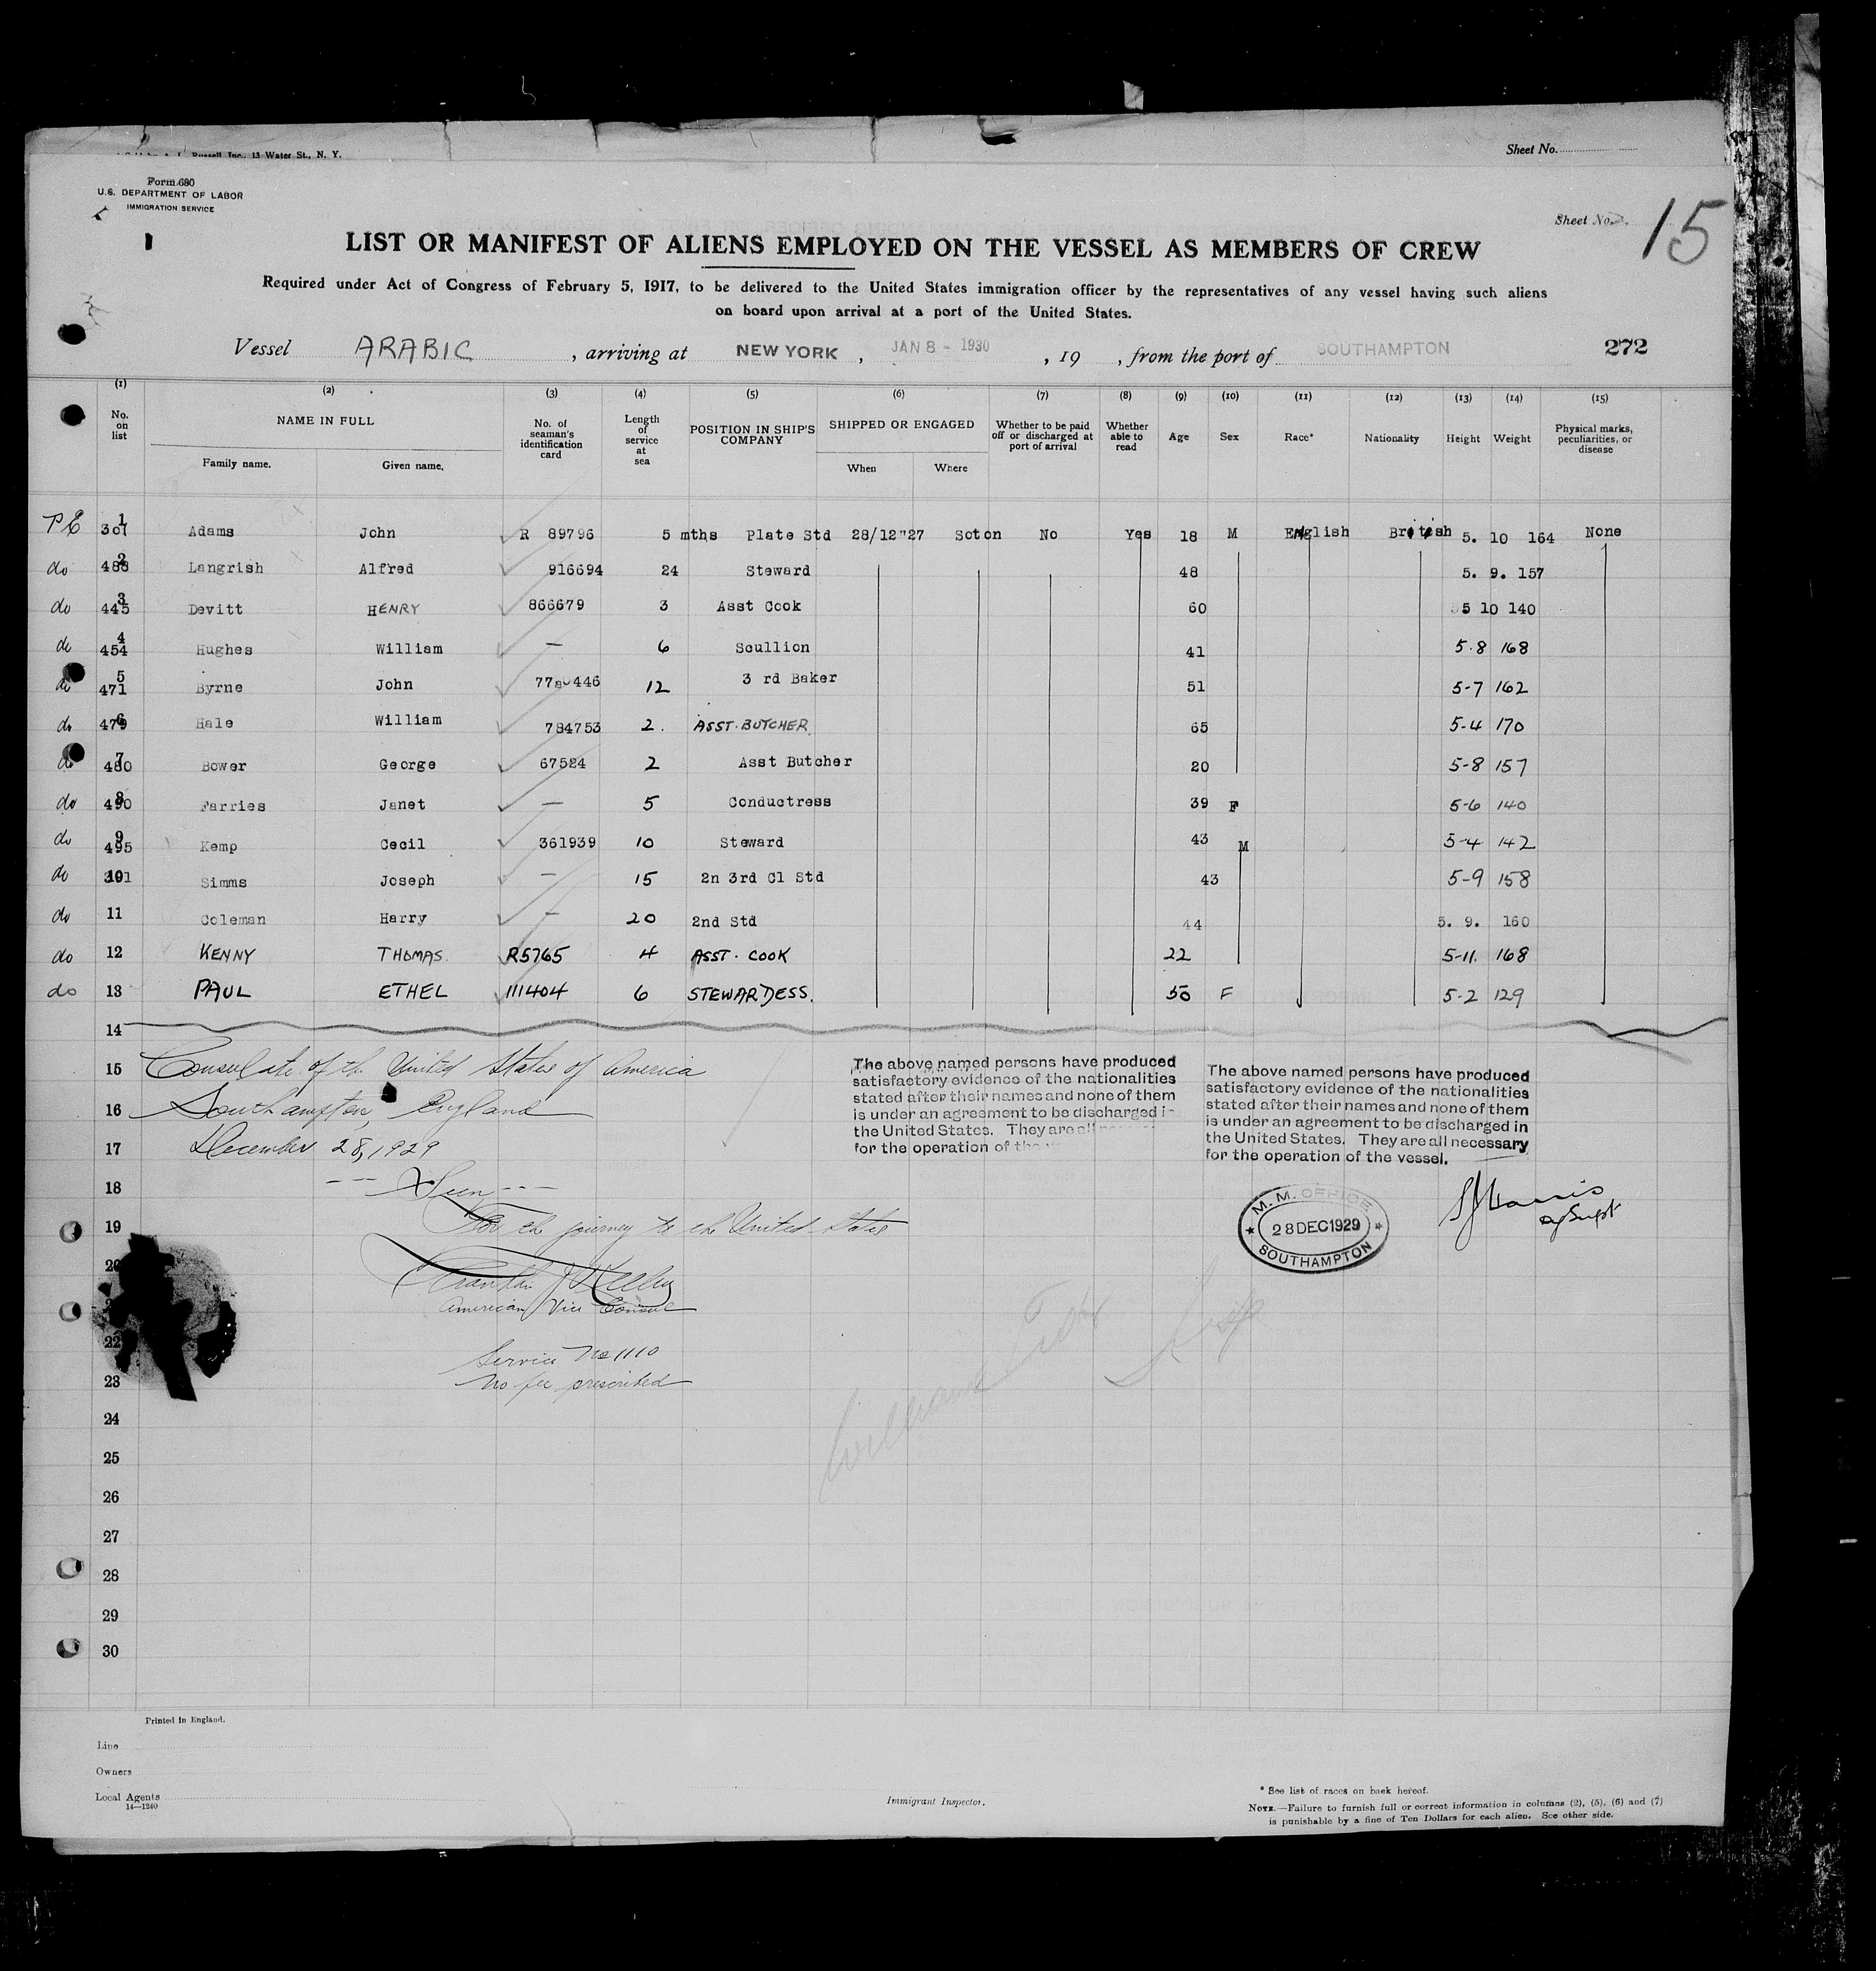 Russell Inc., 13 Water St., N. Y.
Sheet No.
Form 680
U.S. DEPARTMENT OF LABOR
IMMIGRATION SERVICE
Sheet No. 15
LIST OR MANIFEST OF ALIENS EMPLOYED ON THE VESSEL AS MEMBERS OF CREW
Required under Act of Congress of February 5, 1917, to be delivered to the United States immigration officer by the representatives of any vessel having such aliens
on board upon arrival at a port of the United States.
Vessel ARABIC, arriving at NEW YORK, JAN 8 - 1930, 19 , from the port of SOUTHAMPTON 272
(1) (2) (3) (4) (5) (6) (7) (8) (9) (10) (11) (12) (13) (14) (15)
No. on list NAME IN FULL Family name. Given name. No. of seaman's identification card Length of service at sea POSITION IN SHIP'S COMPANY SHIPPED OR ENGAGED When Where Whether to be paid off or discharged at port of arrival Whether able to read Age Sex Race* Nationality Height Weight Physical marks, peculiarities, or disease
PE 1 307 Adams John R 89796 5 mths Plate Std 28/12"27 Soton No Yes 18 M English British 5. 10 164 None
do 2 488 Langrish Alfred 916694 24 Steward 48 5. 9. 157
do 3 445 Devitt HENRY 866679 3 Asst Cook 60 5 10 140
do 4 454 Hughes William — 6 Scullion 41 5.8 168
do 5 471 Byrne John 446 12 3 rd Baker 51 5-7 162
do 6 479 Hale William 784753 2. ASST. BUTCHER 65 5-4 170
do 7 480 Bower George 67524 2 Asst Butcher 20 5-8 157
do 8 490 Farries Janet — 5 Conductress 39 F 5-6 140
do 9 495 Kemp Cecil 361939 10 Steward 43 M 5-4 142
do 10 Simms Joseph — 15 2n 3rd Cl Std 43 5-9 158
do 11 Coleman Harry — 20 2nd Std 44 5. 9. 160
do 12 KENNY THOMAS. R5765 4 ASST. COOK 22 5-11. 168
do 13 PAUL ETHEL 111404 6 STEWARDESS. 50 F 5-2 129
14
15 Consulate of the United States of America
16 Southampton, England
17 December 28, 1929
18 --- Seen ---
19 For the journey to the United States
20
American Vice Consul
22 Service No 1110
23 No fee prescribed
The above named persons have produced
satisfactory evidence of the nationalities
stated after their names and none of them
is under an agreement to be discharged in
the United States. They are all
for the operation of the
The above named persons have produced
satisfactory evidence of the nationalities
stated after their names and none of them
is under an agreement to be discharged in
the United States. They are all necessary
for the operation of the vessel.
M. M. OFFICE
28 DEC 1929
SOUTHAMPTON
24
25
26
27
28
29
30
Printed in England.
Line
Owners
Local Agents
14—1240
Immigrant Inspector.
* See list of races on back hereof.
NOTE.—Failure to furnish full or correct information in columns (2), (5), (6) and (7)
is punishable by a fine of Ten Dollars for each alien. See other side.